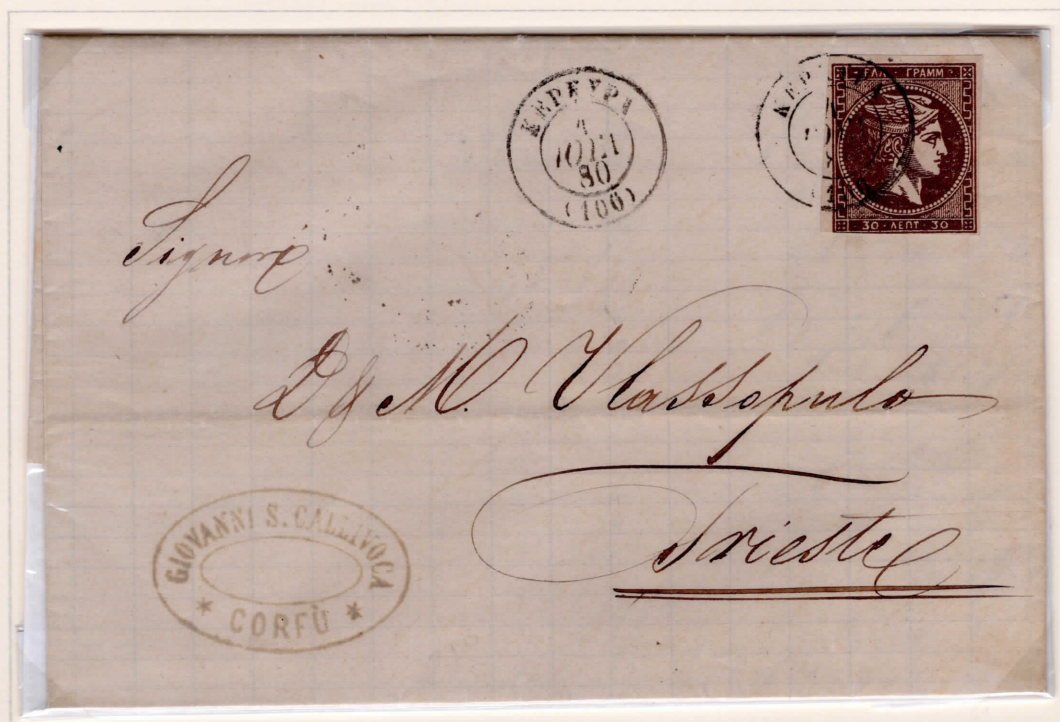 ΚΕΡΚΥΡΑ
ΙΟΥΛ
80
(100)
ΕΛΛ · ΓΡΑΜΜ
30 · ΛΕΠ�T · 30
Signori
D & M. Vlassopulo
Trieste
GIOVANNI S. CALLIVOCA
* CORFÙ *